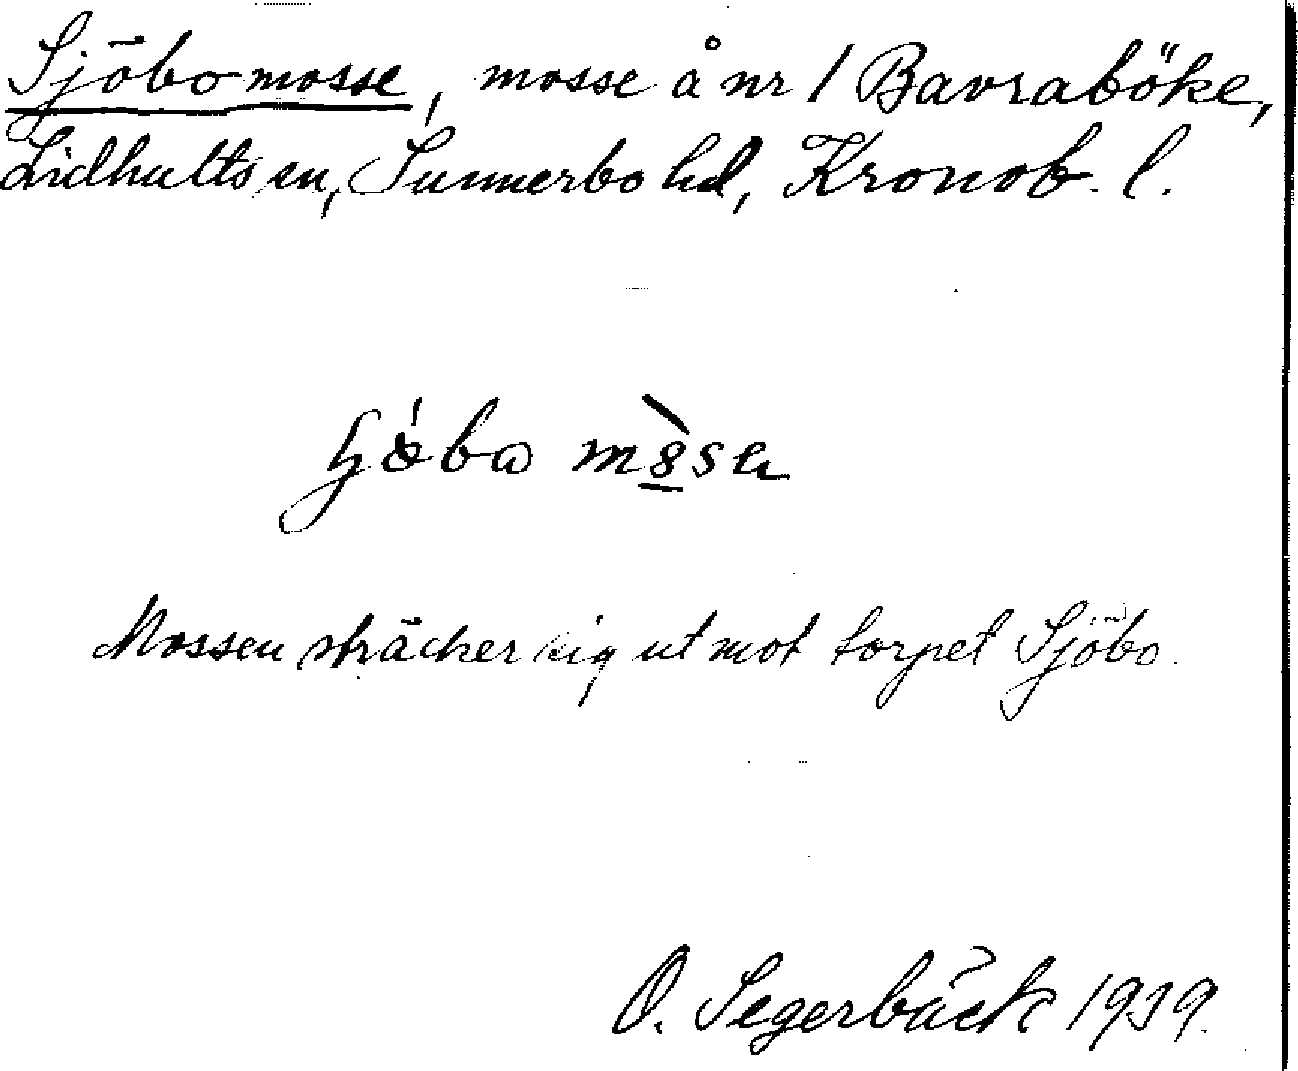 Sjöbo mosse, mosse å nr 1 Bavraböke,
Lidhults sn, Sunnerbo hd, Kronob. l.
Mossen sträcker sig ut mot torpet Sjöbo.
O. Segerbäck 1939.